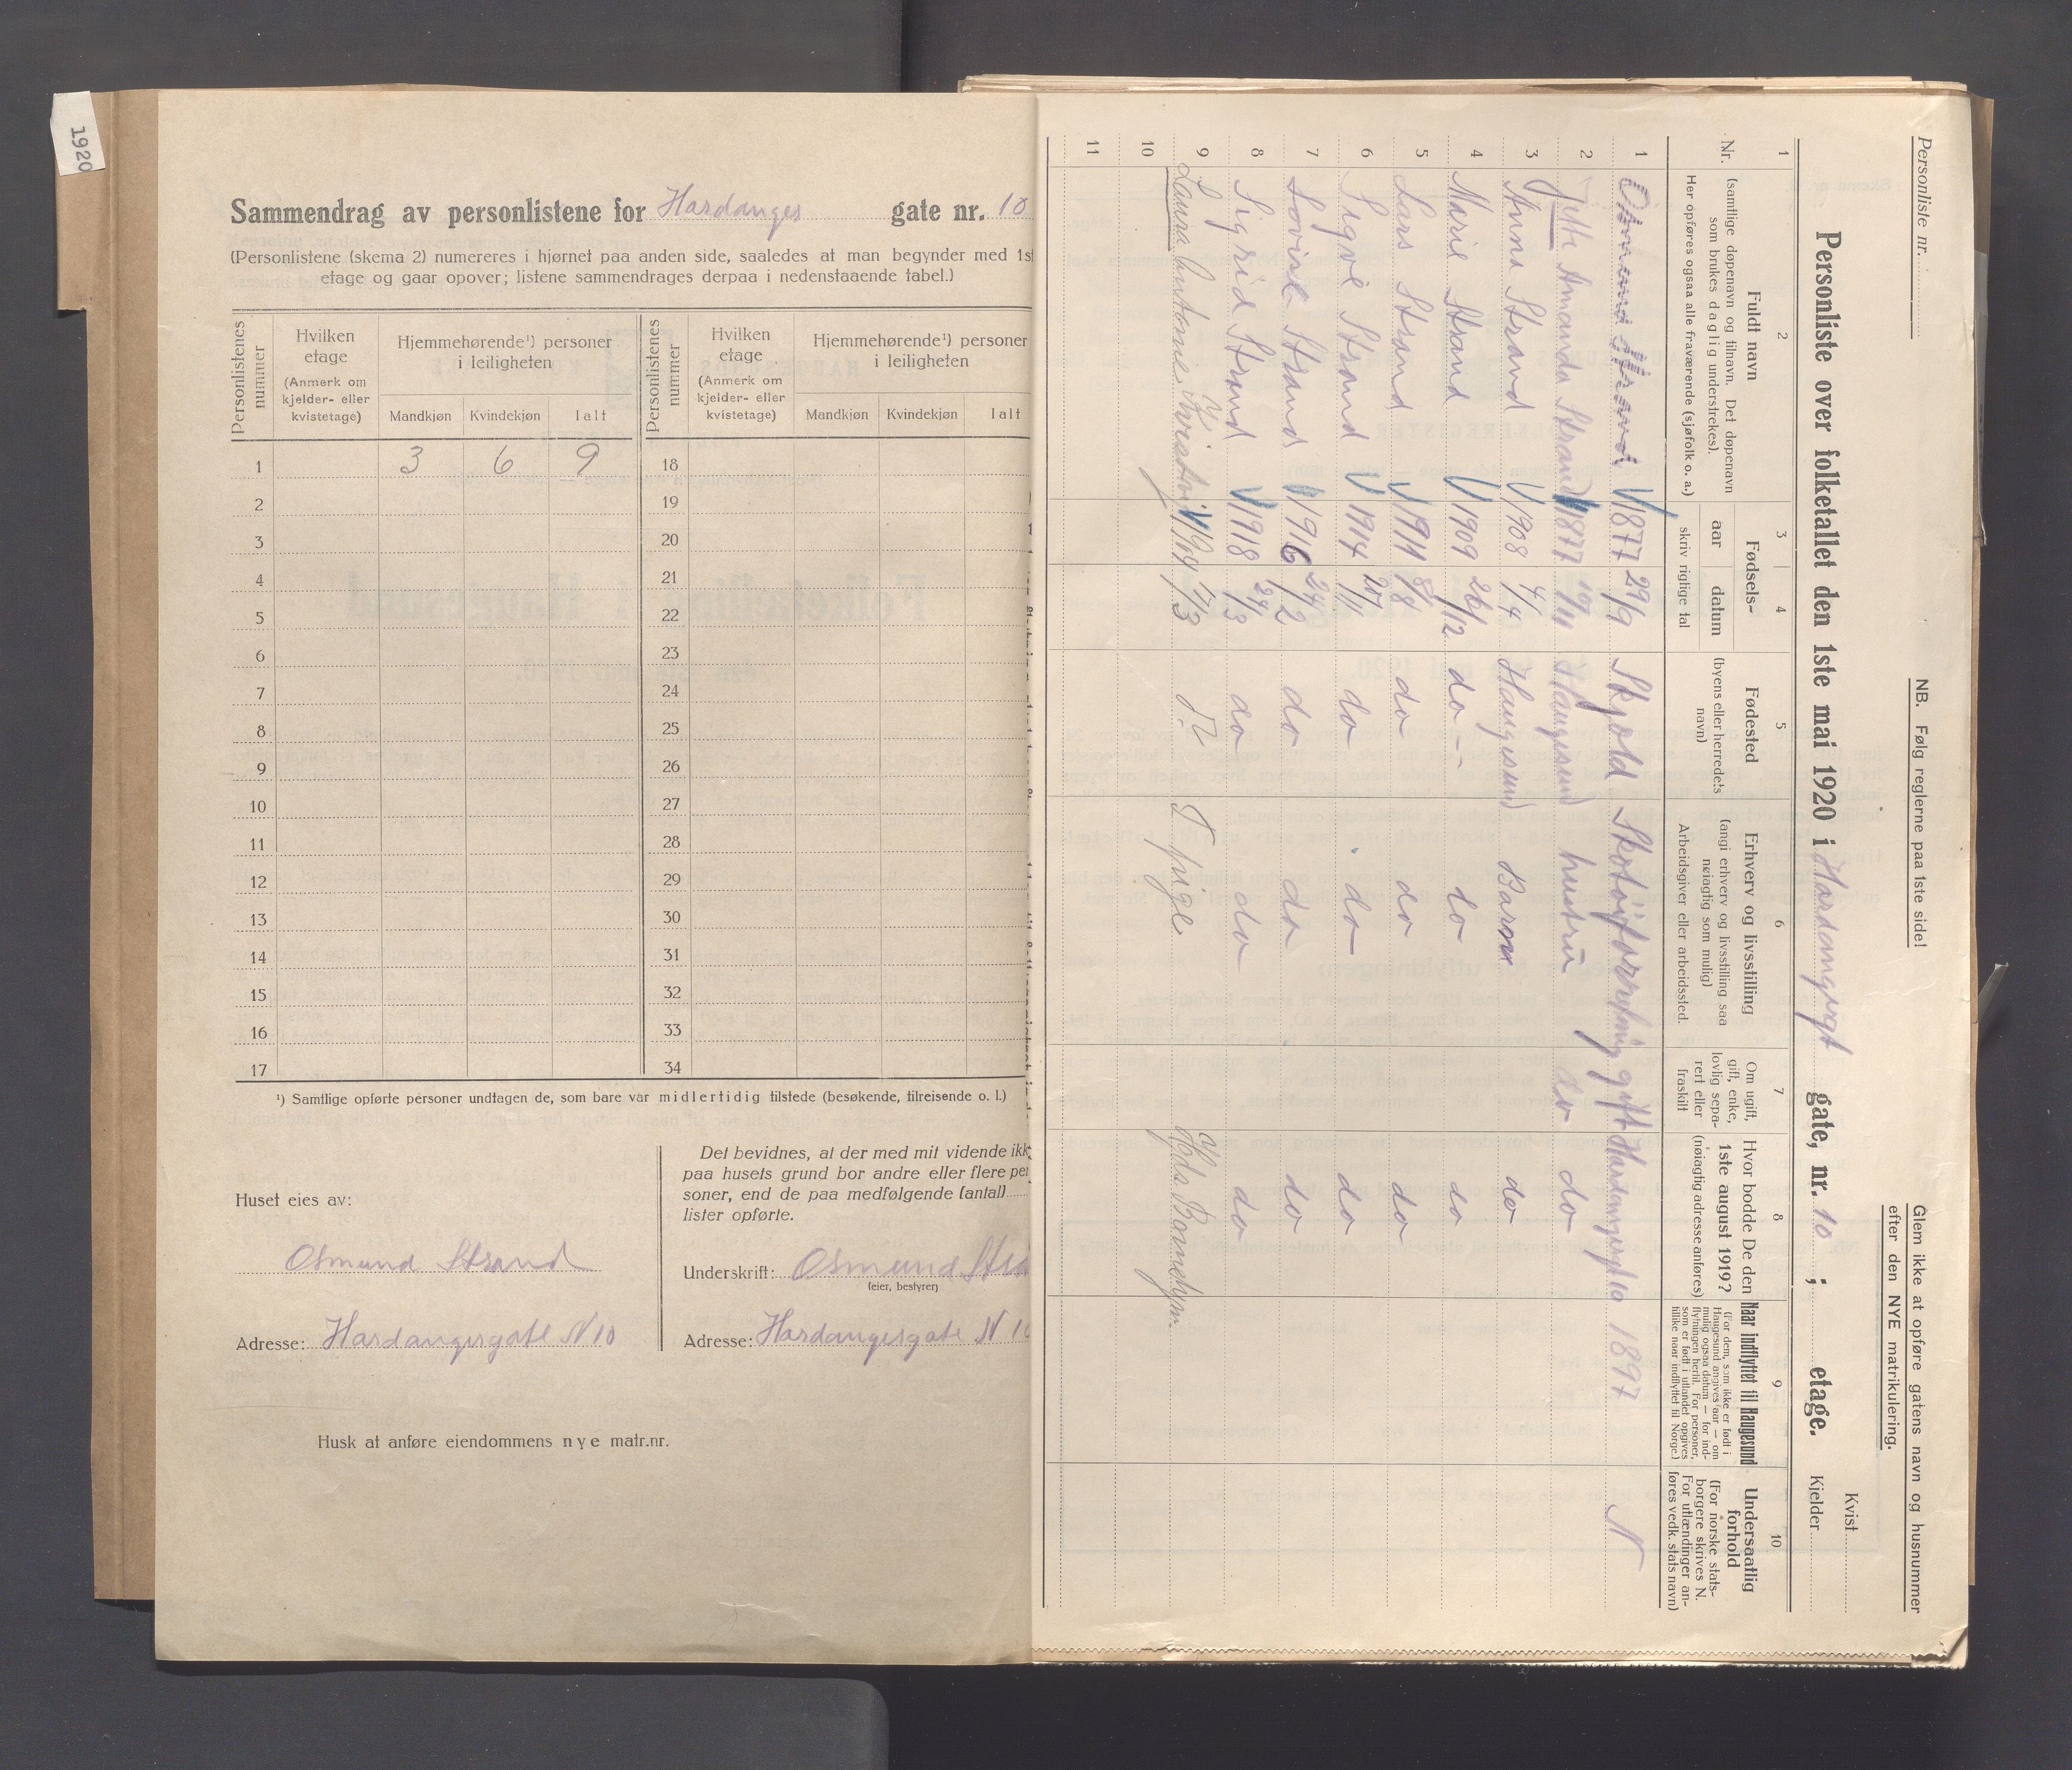 1920
Sammendrag av personlistene for Hardanges gate nr. 10
(Personlistene (skema 2) numereres i hjørnet paa anden side, saaledes at man begynder med 1st
etage og gaar opover; listene sammendrages derpaa i nedenstaaende tabel.)
Personlistenes nummer
Hvilken etage
(Anmerk om kjelder- eller kvistetage)
Hjemmehørende¹) personer i leiligheten
Mandkjøn Kvindekjøn Ialt
Personlistenes nummer
Hvilken etage
(Anmerk om kjelder- eller kvistetage)
Hjemmehørende¹) personer i leiligheten
Mandkjøn Kvindekjøn Ialt
1 3 6 9 18
2 19
3 20
4 21
5 22
6 23
7 24
8 25
9 26
10 27
11 28
12 29
13 30
14 31
15 32
16 33
17 34
¹) Samtlige opførte personer undtagen de, som bare var midlertidig tilstede (besøkende, tilreisende o. l.)
Huset eies av:
Osmund Strand
Adresse: Hardangersgate N 10
Det bevidnes, at der med mit vidende ikk
paa husets grund bor andre eller flere per
soner, end de paa medfølgende (antal)
lister opførte.
Underskrift: Osmund Stra
(eier, bestyrer)
Adresse: Hardangersgate N 10
Husk at anføre eiendommens nye matr.nr.
Personliste nr.
NB. Følg reglerne paa 1ste side!
Glem ikke at opføre gatens navn og husnummer
efter den NYE matrikulering.
Personliste over folketallet den 1ste mai 1920 i Hardangergt gate, nr. 10 ; etage.
Kvist
Kjelder
1 2 3 4 5 6 7 8 9 10
Nr.
Fuldt navn
(samtlige døpenavn og tilnavn. Det døpenavn
som brukes daglig understrekes).
Her opføres ogsaa alle fraværende (sjøfolk o. a.)
Fødsels-
aar datum
skriv rigtige tal
Fødested
(byens eller herredets
navn)
Erhverv og livsstilling
(angi erhverv og livsstilling saa
nøiagtig som mulig)
Arbeidsgiver eller arbeidssted.
Om ugift,
gift, enke,
lovlig sepa-
rert eller
fraskilt
Hvor bodde De den
1ste august 1919?
(nøiagtig adresse anføres)
Naar indflyttet til Haugesund
(For dem, som ikke er født i
Haugesund angives aar — om
mulig ogsaa datum — for ind-
flytningen hertil. For personer,
som er født i utlandet opgives
tillike naar indflyttet til Norge.)
Undersaatlig
forhold
(For norske stats-
borgere skrives N.
For utlændinger an-
føres vedk. stats navn)
1 Osmund Strand 1877 29/9 Skjold Skotøiforretning gift Hardangergt 10 1897 N
2 Jette Amanda Strand 1877 10/11 Haugesund hustru do do
3 Anna Strand 1908 4/4 Haugesund Barn do
4 Marie Strand 1909 26/12 do do do
5 Lars Strand 1911 8/8 do do do
6 Sigve Strand 1914 20/11 do do do
7 Lovise Strand 1916 24/2 do do do
8 Sigrid Strand 1918 29/3 do do do
9 Laura Antonie 1901 1/3 pige
10
11